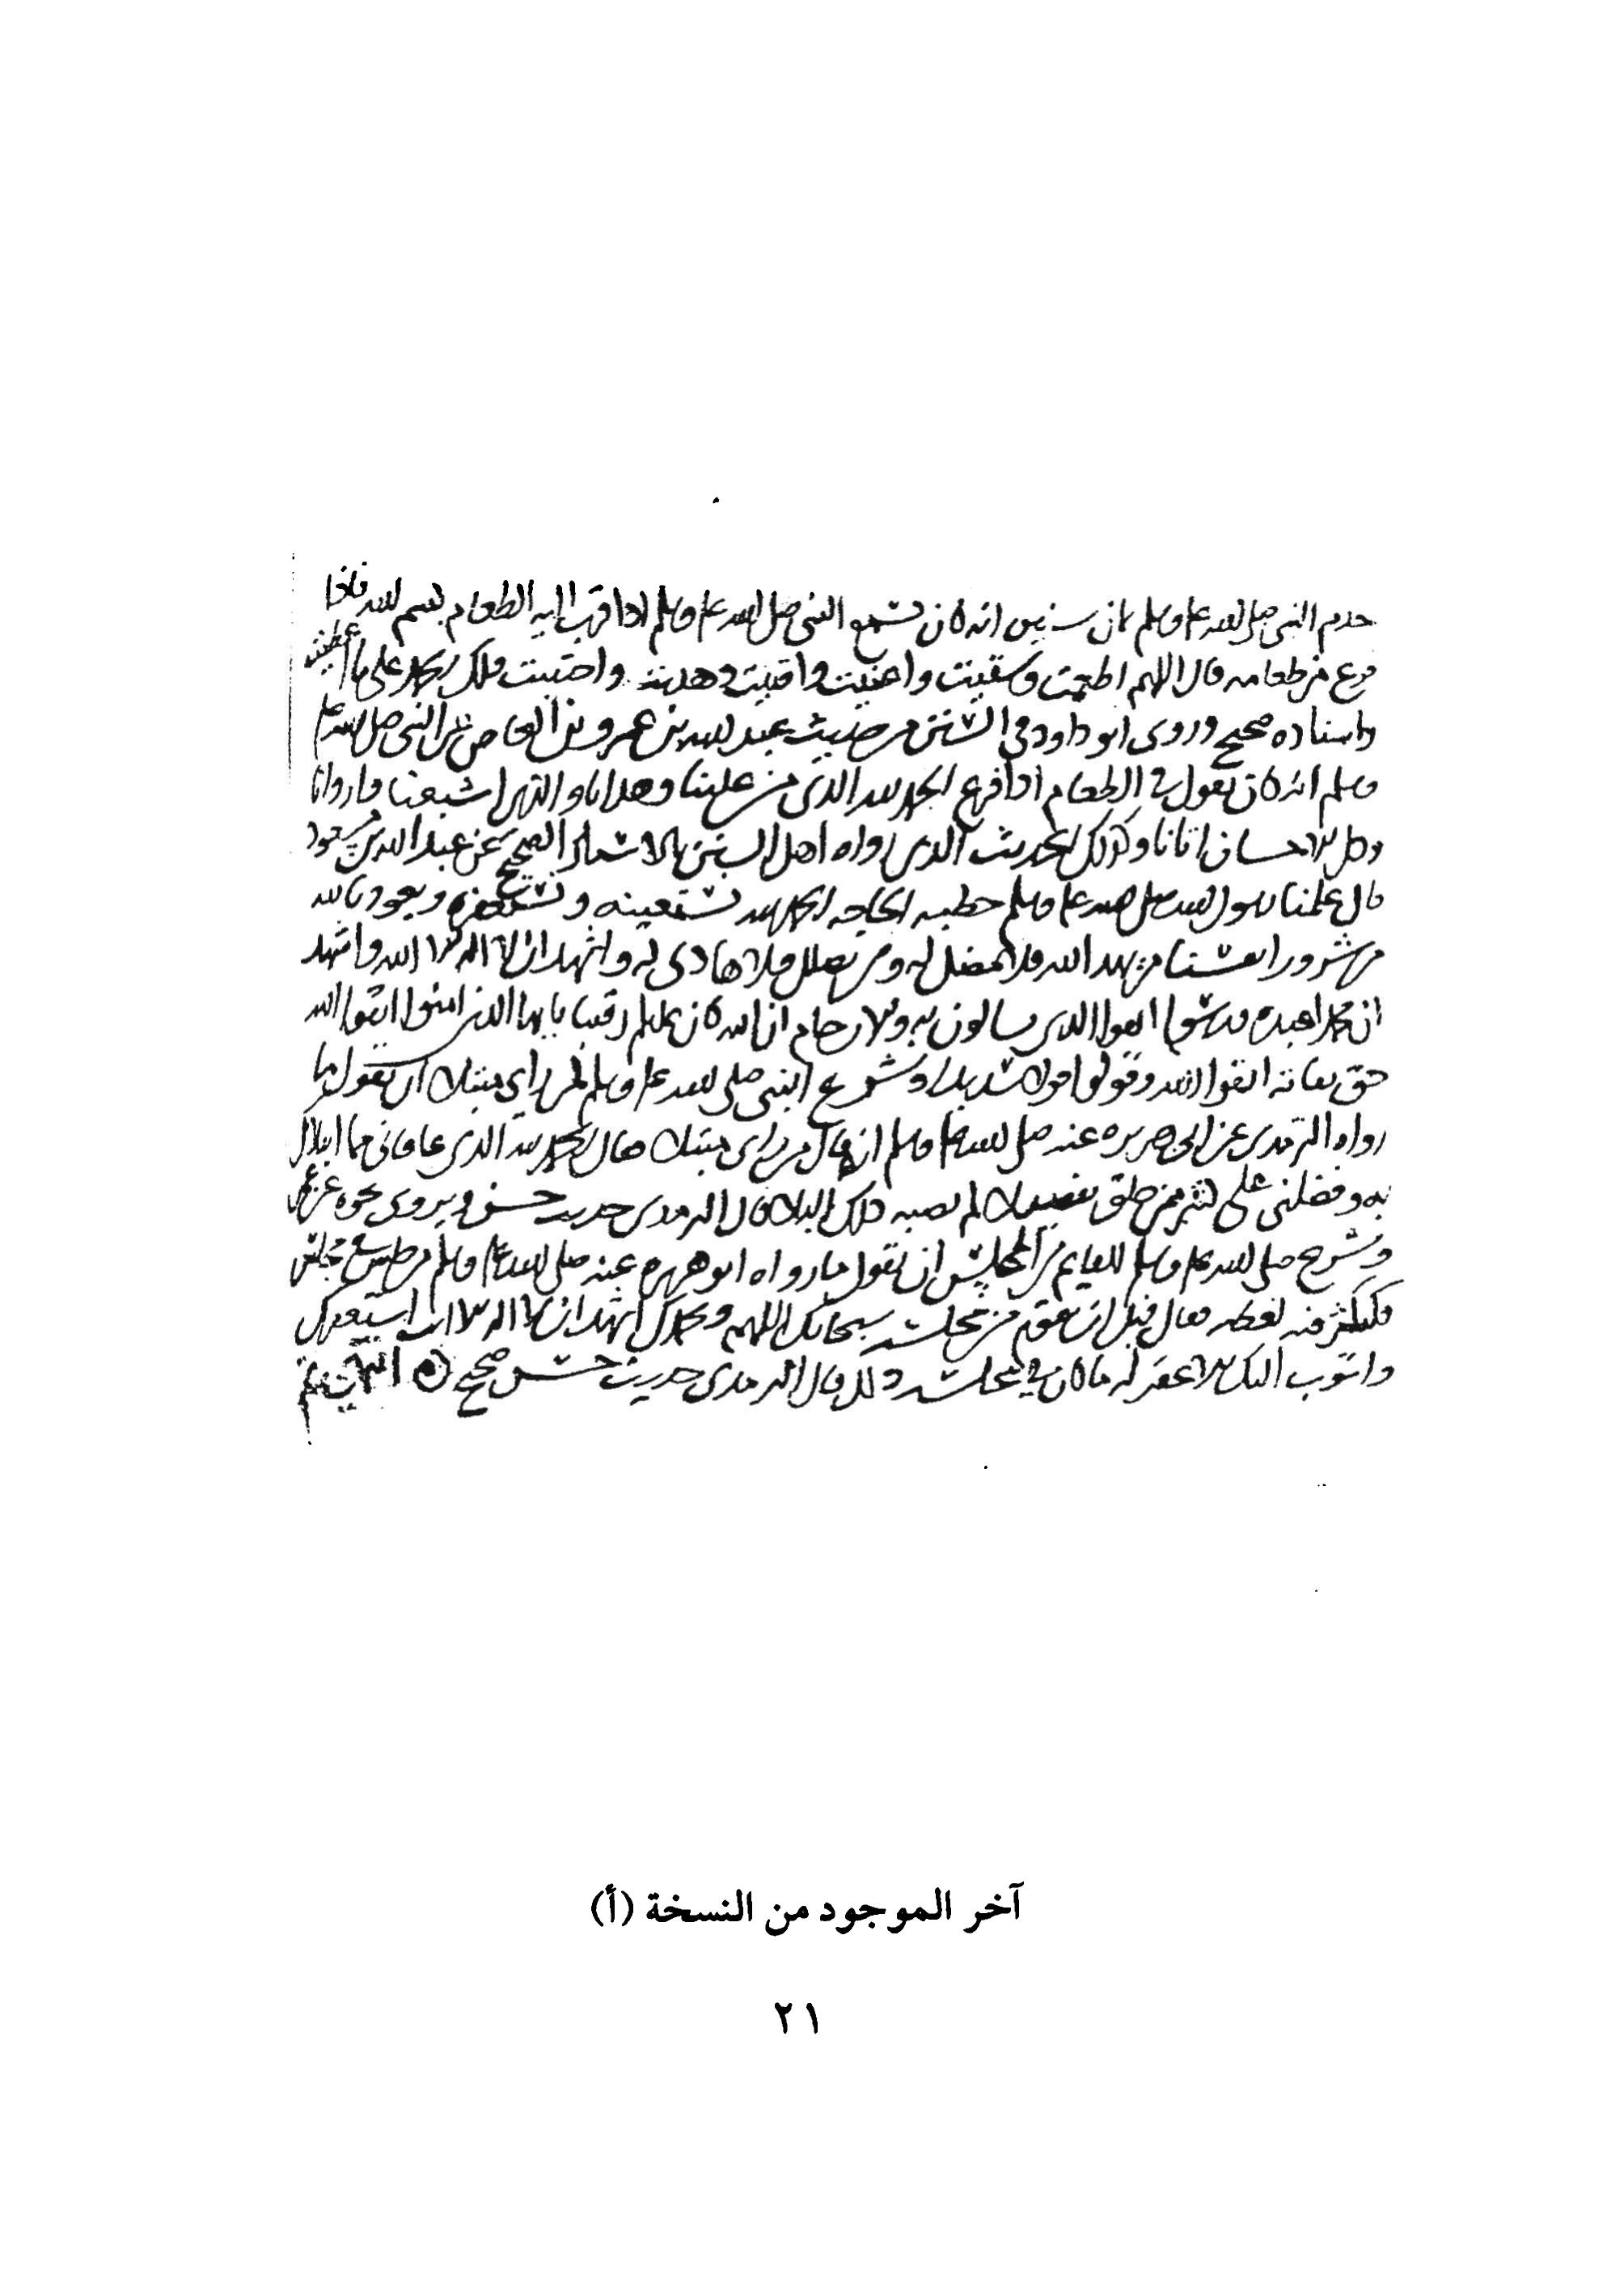 خدم النبي صلى الله عليه وسلم ثمان سنين انه كان يسمع النبي صلى الله عليه وسلم اذا قرب اليه الطعام بسم الله فاذا
فرغ من طعامه قال اللهم اطعمت وسقيت واغنيت واقنيت وهديت واجتبيت فلك الحمد على ما اعطيت
واسناده صحيح وروى ابو داود في السنن من حديث عبد الله بن عمرو بن العاص عن النبي صلى الله عليه
وسلم انه كان يقول في الطعام اذا فرغ الحمد لله الذي من علينا وهدانا والذي اشبعنا واروانا
وكل الاحسان اتانا وكذلك الحديث الذي رواه اهل السنن بالاسناد الصحيح عن عبد الله بن مسعود
قال علمنا رسول الله صلى الله عليه وسلم خطبة الحاجة الحمد لله نستعينه ونستغفره ونعوذ بالله
من شرور انفسنا من يهد الله فلا مضل له ومن يضلل فلا هادي له واشهد ان لا اله الا الله واشهد
ان محمدا عبده ورسوله اتقوا الله الذي تسالون به والارحام ان الله كان عليكم رقيبا يا ايها الذين امنوا اتقوا الله
حق تقاته اتقوا الله وقولوا قولا سديدا وشرع النبي صلى الله عليه وسلم لمن راى مبتلا ان يقول ما
رواه الترمذي عن ابي هريرة عنه صلى الله عليه وسلم انه قال من راى مبتلا فقال الحمد لله الذي عافاني مما ابتلاك
به وفضلني على كثير ممن خلق تفضيلا لم يصبه ذلك البلا قال الترمذي حديث حسن ويروى نحوه عن عمر
وشرع صلى الله عليه وسلم للقايم من المجلس ان يقول ما رواه ابو هريرة عنه صلى الله عليه وسلم من جلس في مجلس
فكثر فيه لغطه فقال قبل ان يقوم من مجلسه سبحانك اللهم وبحمدك اشهد ان لا اله الا انت استغفرك
واتوب اليك الا غفر له ما كان في مجلسه ذلك قال الترمذي حديث حسن صحيح
آخر الموجود من النسخة (أ)
٢١